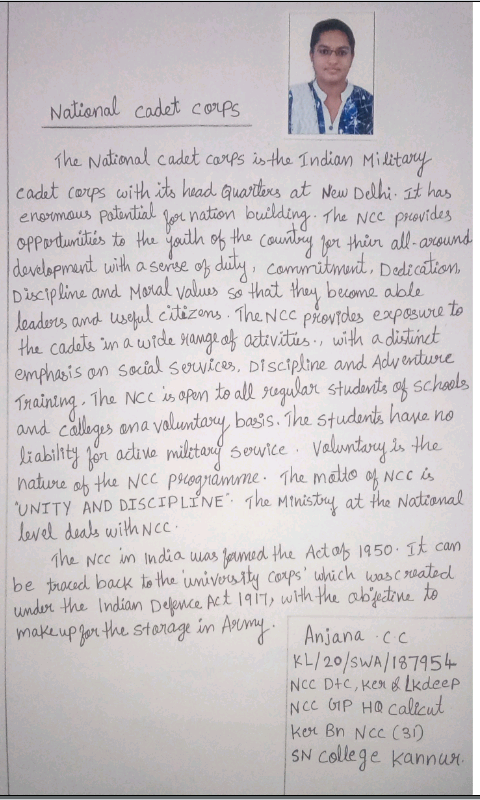 National Cadet Corps
The National Cadet Corps is the Indian Military
cadet corps with its head Quarters at New Delhi. It has
enormous potential for nation building. The NCC provides
opportunities to the youth of the country for their all-around
development with a sense of duty, commitment, Dedication,
Discipline and Moral Values so that they become able
leaders and useful citizens. The NCC provides exposure to
the cadets in a wide range of activities., with a distinct
emphasis on Social Services, Discipline and Adventure
Training. The NCC is open to all regular students of schools
and colleges on a voluntary basis. The students have no
liability for active military service. Voluntary is the
nature of the NCC programme. The motto of NCC is
"UNITY AND DISCIPLINE". The Ministry at the National
level deals with NCC.
The NCC in India was formed the Act of 1950. It can
be traced back to the 'university corps' which was created
under the Indian Defence Act 1917, with the objective to
make up for the storage in Army.
Anjana .C.C
KL/20/SWA/187954
NCC Dte, Ker & Lkdeep
NCC GP HQ Calicut
Ker Bn NCC (31)
SN College Kannur.